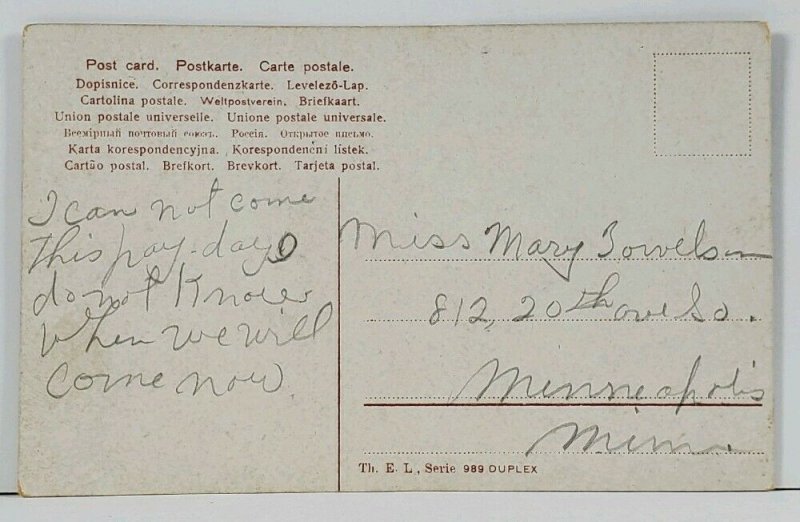 Post card. Postkarte. Carte postale.
Dopisnice. Correspondenzkarte. Levelező-Lap.
Cartolina postale. Weltpostverein. Briefkaart.
Union postale universelle. Unione postale universale.
Всемірный почтовый союзъ. Россія. Открытое письмо.
Karta korespondencyjna. Korespondenční lístek.
Cartão postal. Brefkort. Brevkort. Tarjeta postal.
I can not come
this pay-day
do not Know
when we will
come now
Miss Mary
812, 20th ave So.
Minneapolis
Minn.
Th. E. L., Serie 989 DUPLEX